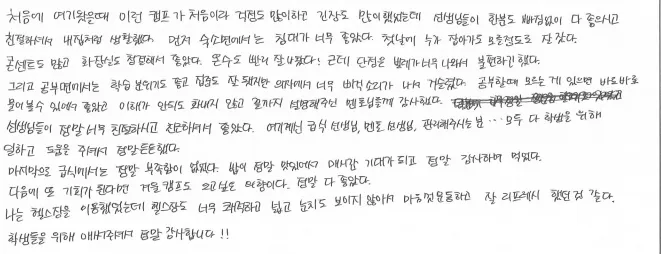 처음에 여기왔을때 이런 캠프가 처음이라 걱정도 많이하고 긴장도 많이했었는데 선생님들이 한분도 빠짐없이 다 좋으시고
친절하셔서 내집처럼 생활했다. 먼저 숙소면에서는 침대가 너무 좋았다. 첫날에 누가 잡아가도 모를정도로 잘 잤다.
콘센트도 많고 화장실도 청결해서 좋았다. 온수도 빨리 잘나왔다! 근데 단점은 벌레가 너무 나와서 불편하긴했다.
그리고 공부면에서는 학습 분위기도 좋고 집중도 잘 됐지만 의자에서 너무 삐걱 소리가 나서 거슬렸다. 공부할때 모르는 게 있으면 바로바로
물어볼수 있어서 좋았고 이해가 안되도 화내지 않고 끝까지 설명해주신 멘토님들께 감사했다.
선생님들이 정말 너무 친절하시고 친근하셔서 좋았다. 여기계신 급식 선생님, 멘토 선생님, 관리해주시는 분 … 모두 다 학생을 위해
일하고 도움을 주셔서 정말든든했다.
마지막으로 급식에서는 정말 부족함이 없었다. 밥이 정말 맛있어서 매시간 기대가 되고 정말 감사하며 먹었다.
다음에 또 기회가 된다면 겨울 캠프도 의향이다. 정말 다 좋았다.
나는 헬스장을 이용했었는데 헬스장도 너무 쾌적하고 넓고 눈치도 보이지 않아서 마음껏 운동하고 잘 리프레시 했던것 같다.
학생들을 위해 애써주셔서 정말 감사합니다 !!